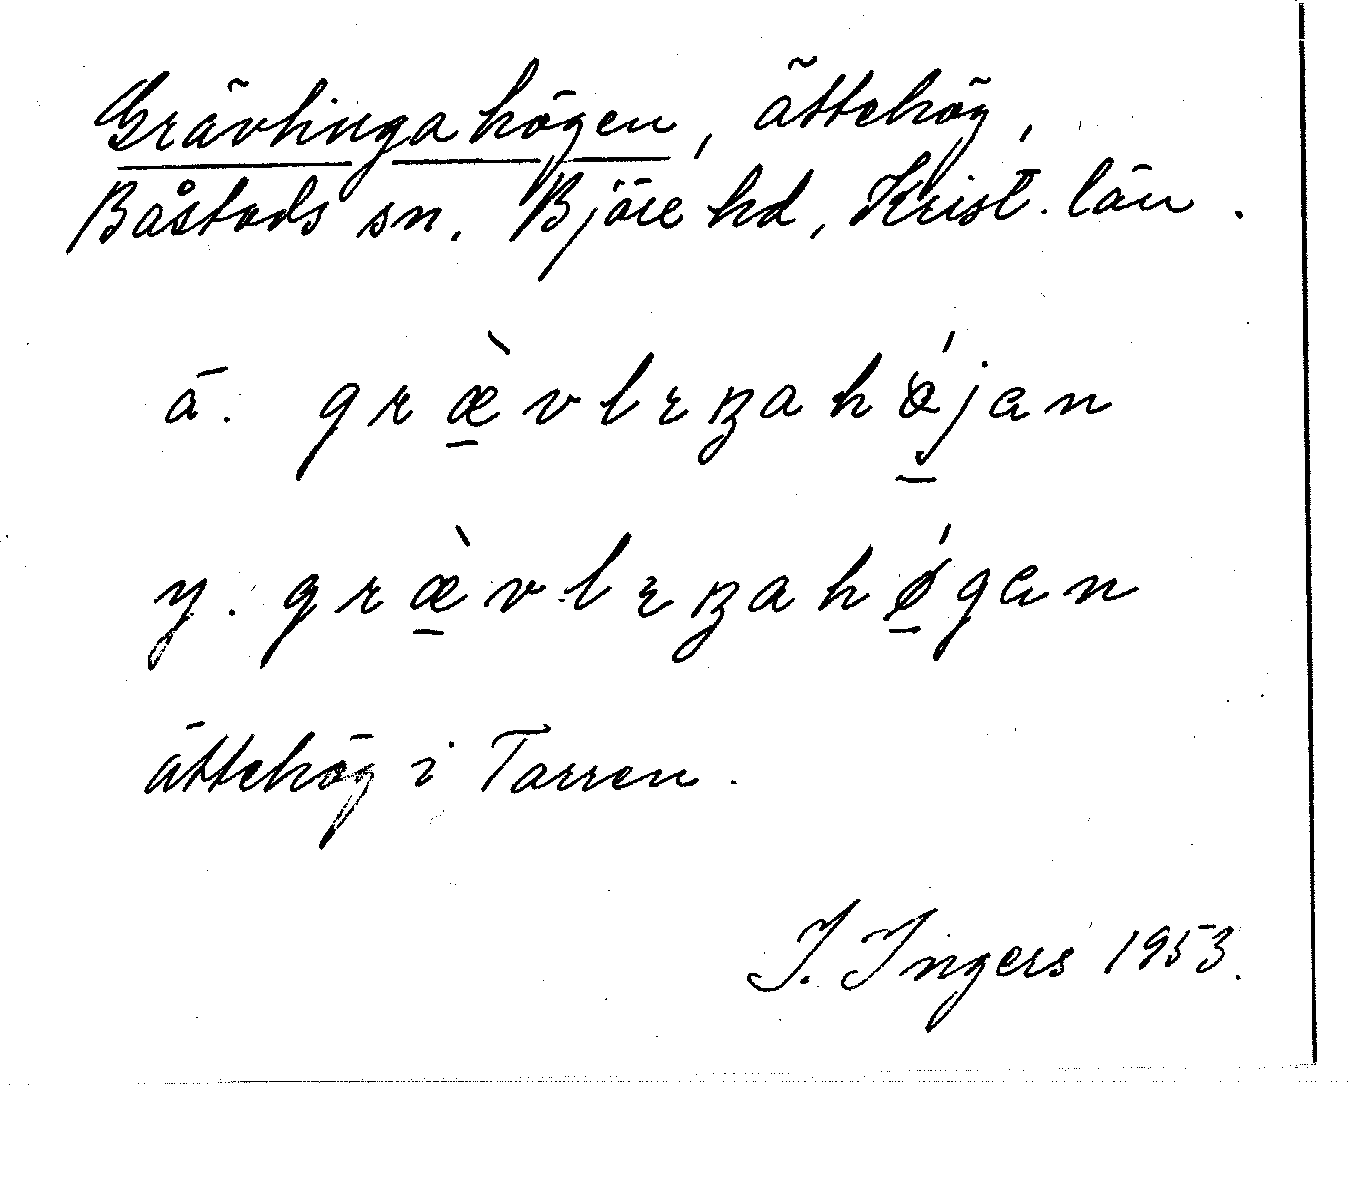 Grävlingahögen, ättehög,
Båstads sn. Bjäre hd, Krist. län.
ä. græ̀vlıŋahǿjan
y. græ̀vlıŋahǿgan
ättehög i Tarren.
I. Ingers 1953.